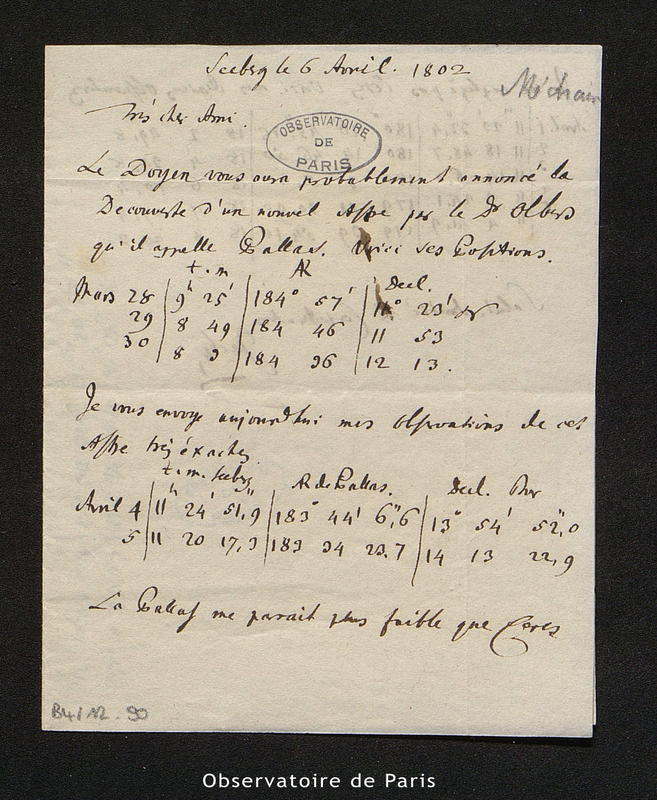 Seeberg le 6 Avril. 1802
Méchain
Très cher Ami.
OBSERVATOIRE
DE
PARIS
Le Doyen vous aura probablement annoncé la
Decouverte d'un nouvel Astre par le Dr Olbers
qu'il appelle Pallas. Voici ses Positions.
t. m AR Decl.
Mars 28 9h 25' 184° 57' 11° 23'
29 8 49 184 46 11 53
30 8 3 184 36 12 13.
Je vous envoye aujourdhui mes observations de cet
Astre très éxactes
t. m. Seeberg AR de Pallas. Decl. Bor
Avril 4 11h 24' 51",9 183° 44' 6",6 13° 54' 52",0
5 11 20 17,3 183 34 23.7 14 13 22,9
La Pallas me parait plus faible que Ceres
B4/12. 90
Observatoire de Paris